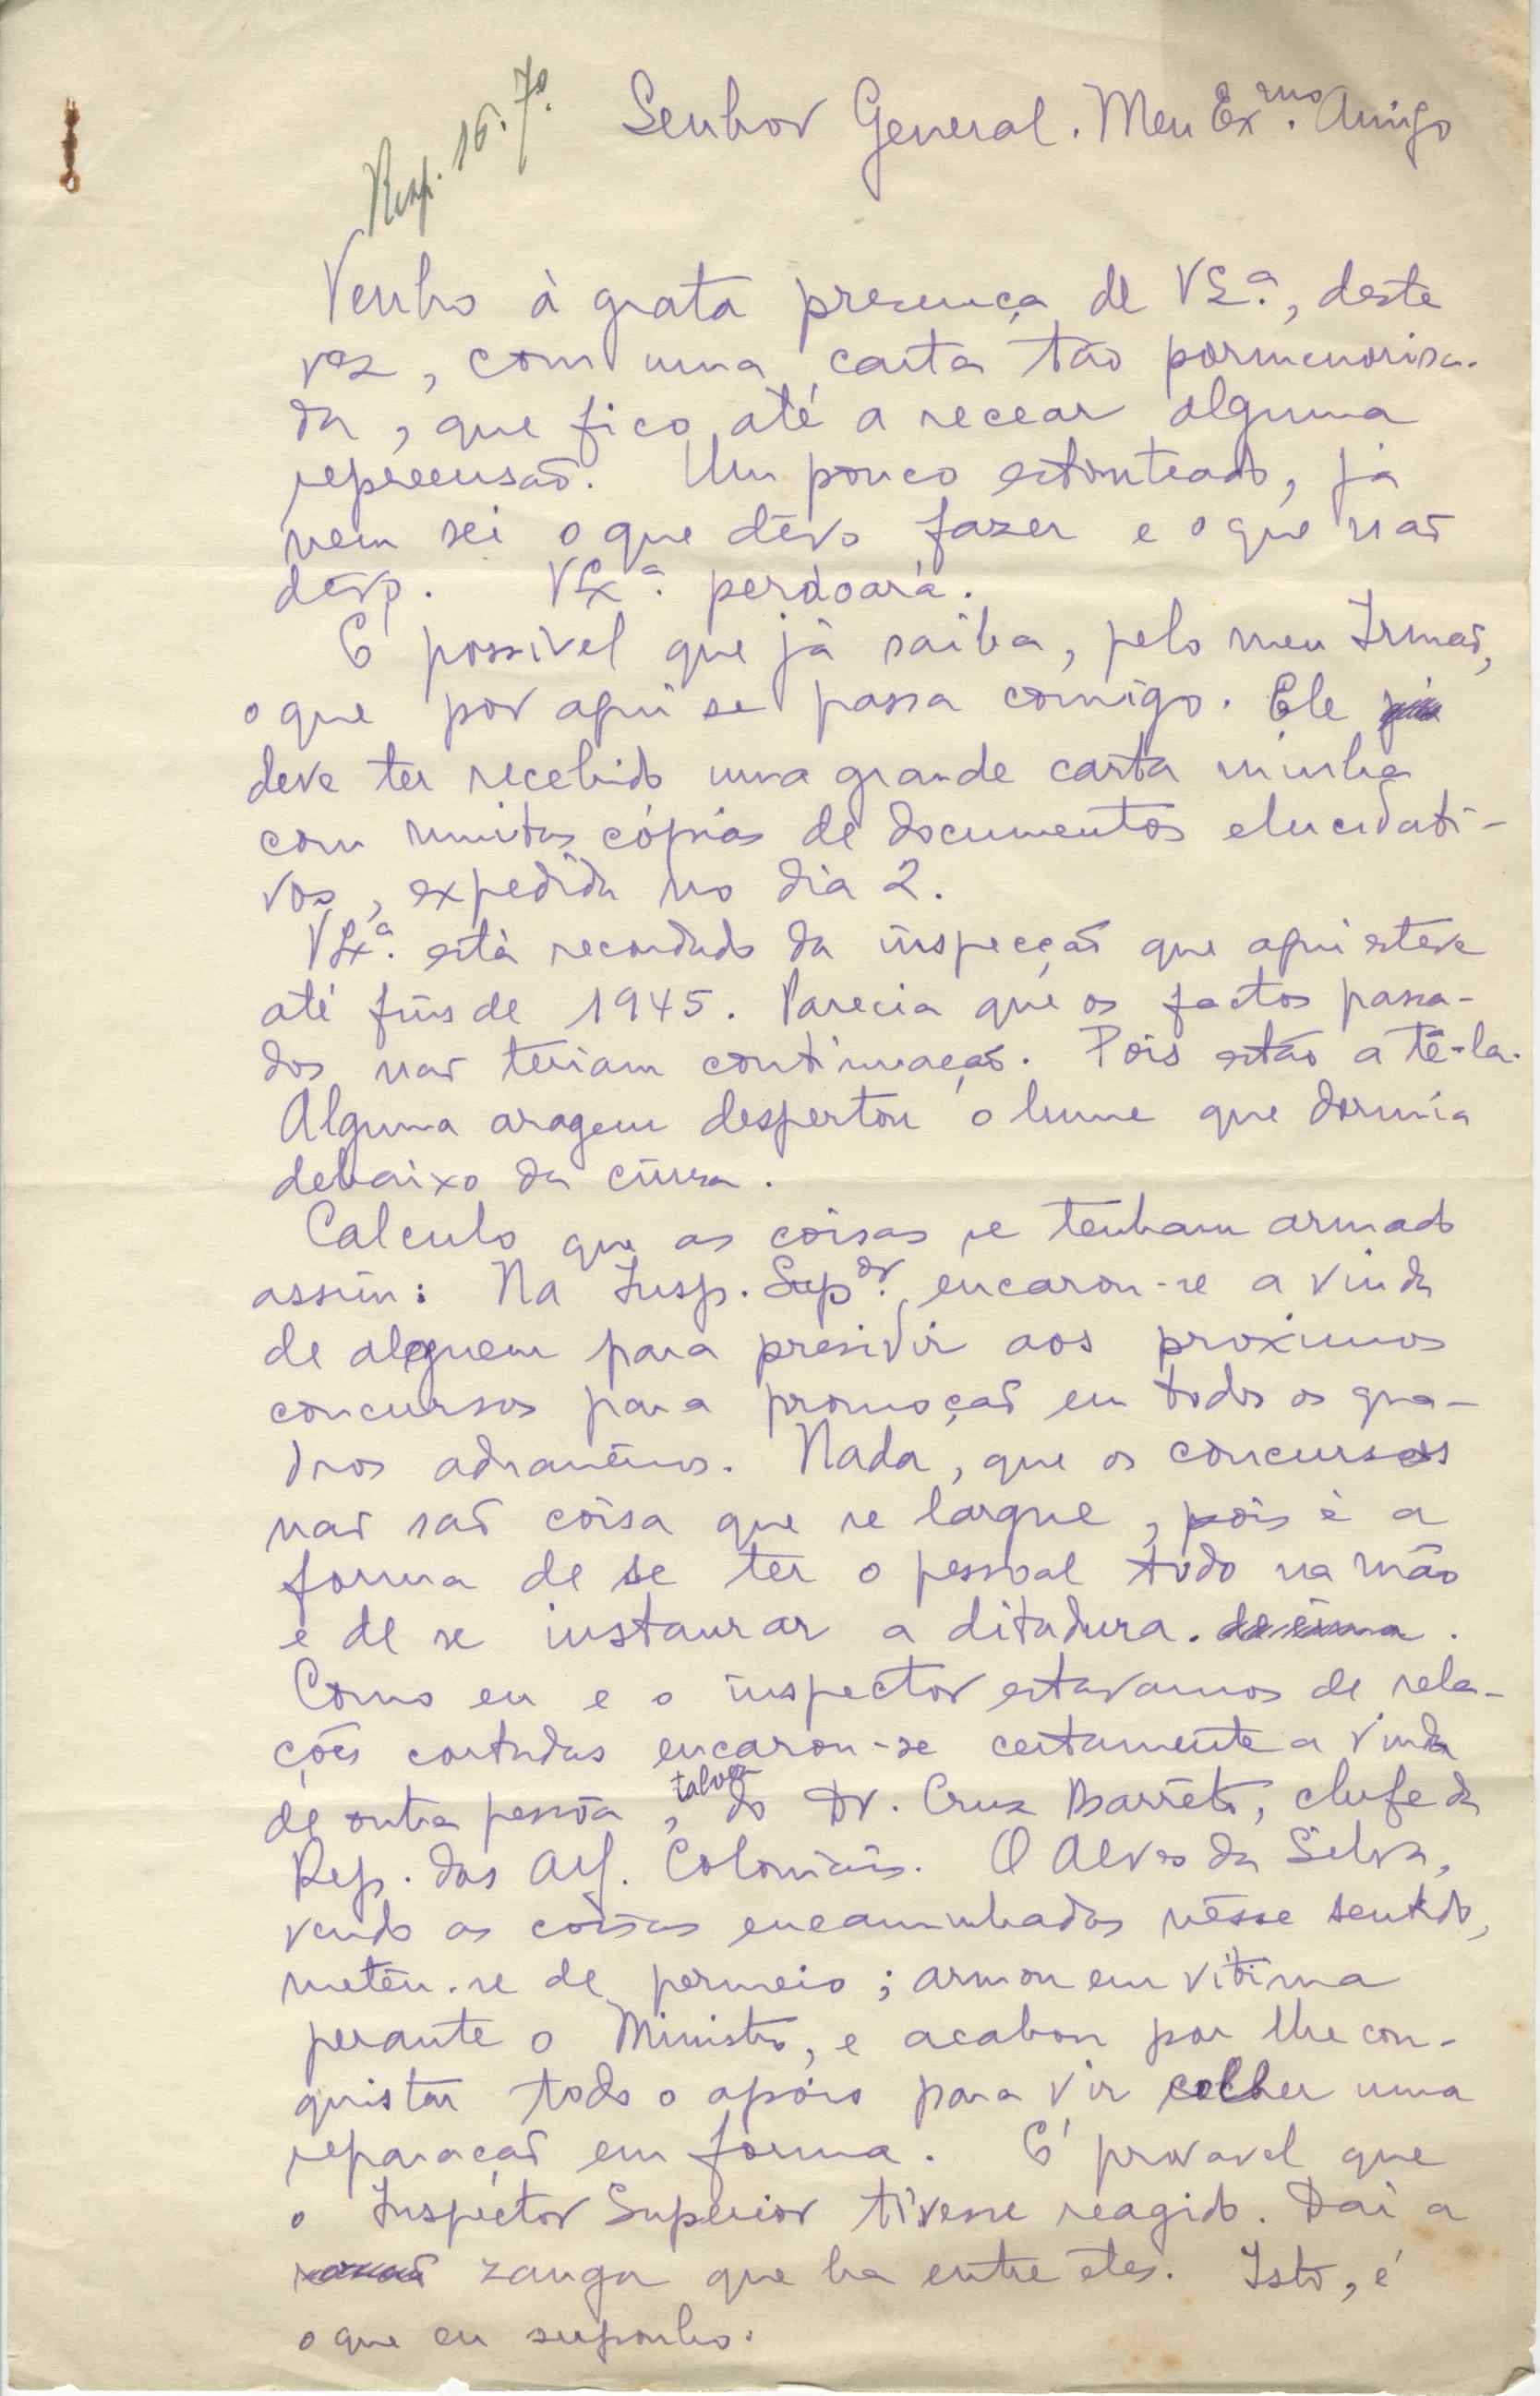 Resp. 16.7º.
Senhor General. Meu Exmo. Amigo
Venho à grata presença de VEª., deste
vez, com uma carta tão pormenorisa-
da, que fico até a recear alguma
repreensão. Um pouco estonteado, já
nem sei o que dêvo fazer e o que não
dêvo. VExª. perdoará.
É possivel que já saiba, pelo meu Irmão,
o que por aqui se passa comigo. Ele
deve ter recebido uma grande carta minha
com muitas cópias de documentos elucidati-
vos, expedida no dia 2.
VExª. está recordado da inspecção que aqui esteve
até fins de 1945. Parecia que os factos passa-
dos não teriam continuação. Pois estão a tê-la.
Alguma aragem despertou o lume que dormia
debaixo da cinza.
Calculo que as coisas se tenham armado
assim: Na Insp. Supor. encarou-se a vinda
de alguem para presidir aos proximos
concursos para promoção em todos os qua-
dros aduaneiros. Nada, que os concursos
não são coisa que se largue, pois é a
forma de se ter o pessoal todo na mão
e de se instaurar a ditadura. de cima.
Como eu e o inspector estavamos de rela-
ções cortadas encarou-se certamente a vinda
de outra pessoa, talvez do Dr. Cruz Barrêto, chefe da
Rep. das Alf. Coloniais. O Alves da Silva,
vendo as coisas encaminhadas nêsse sentido,
metêu-se de permeio; armou em vitima
perante o Ministro, e acabou por lhe con-
quistar todo o apôio para vir colher uma
reparação em forma. É provavel que
o Inspector Superior tivesse reagido. Dai a
zanga que ha entre eles. Isto, é
o que eu suponho.